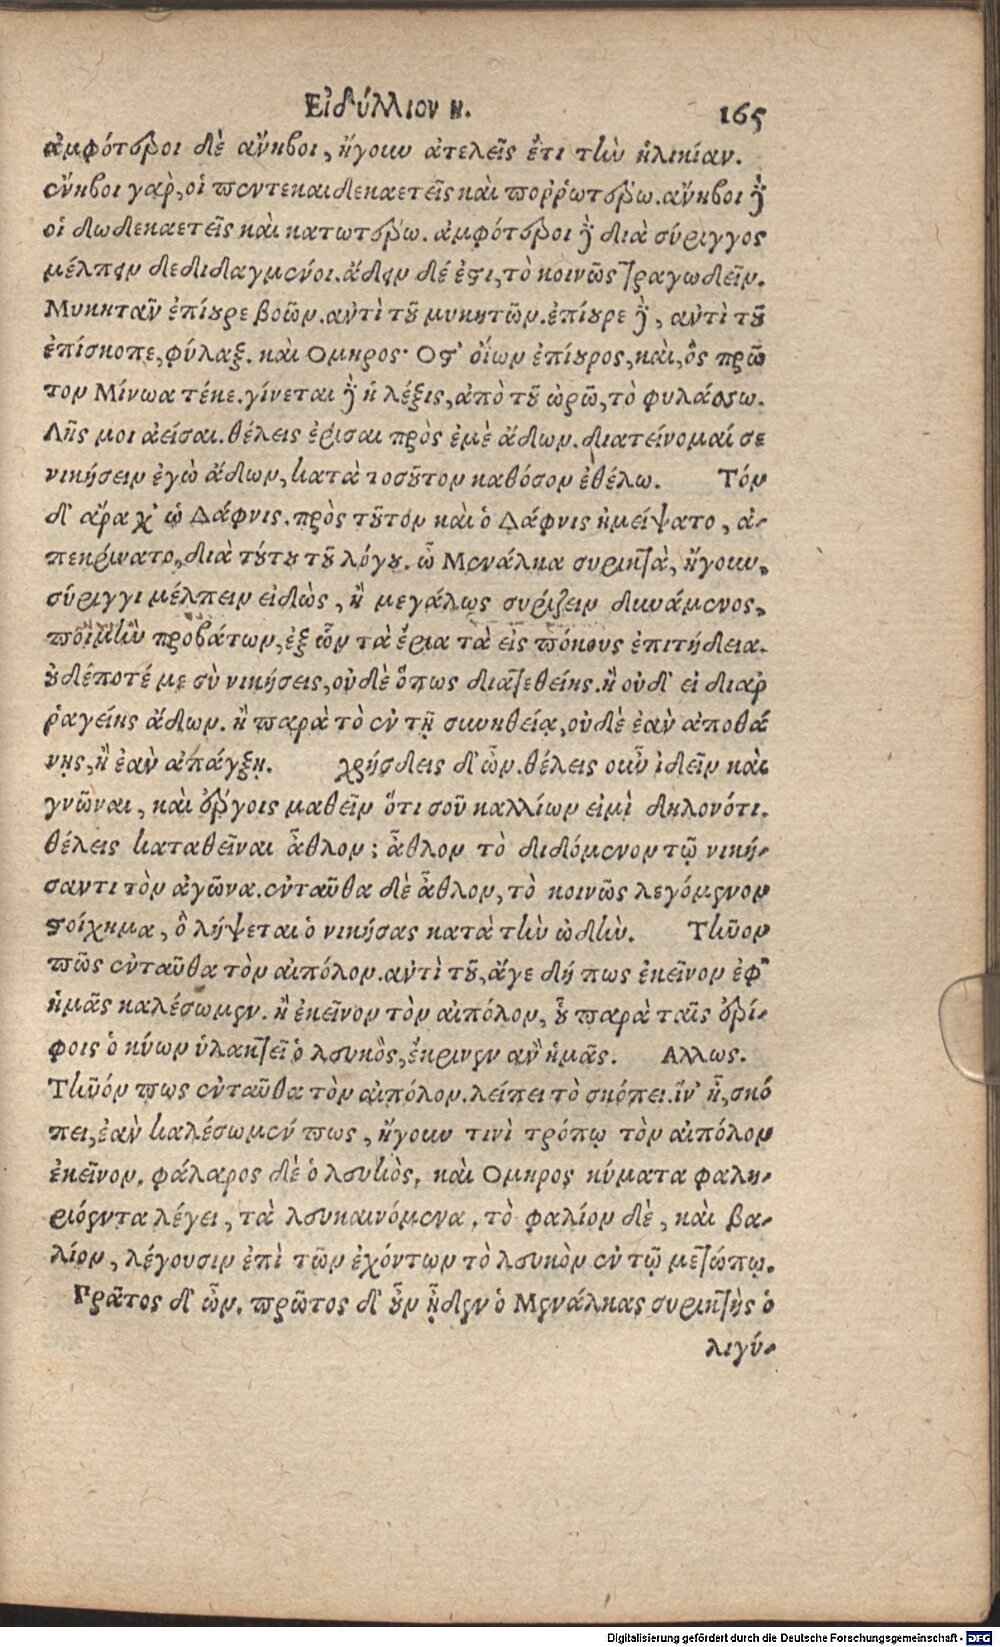 Εἰδύλλιον η. 165
ἀμφότεροι δὲ ἄνηβοι, ἤγουν ἀτελεῖς ἔτι τὴν ἡλικίαν.
ἔνηβοι γὰρ, οἱ πεντεκαιδεκαετεῖς καὶ ποῤῥωτέρω. ἄνηβοι δὲ
οἱ δωδεκαετεῖς καὶ κατωτέρω. ἀμφότεροι δὲ διὰ σύριγγος
μέλπειν δεδιδαγμένοι. ἄδειν δέ ἐστι, τὸ κοινῶς τραγωδεῖν.
Μυκητᾶν ἐπίουρε βοῶν. ἀντὶ τοῦ μυκητῶν. ἐπίουρε δὲ, ἀντὶ τοῦ
ἐπίσκοπε, φύλαξ. καὶ Ομηρος· Οστ' οἴων ἐπίουρος, καὶ, ὃς πρῶ
τον Μίνωα τέκε. γίνεται δὲ ἡ λέξις, ἀπὸ τοῦ ὠρῶ, τὸ φυλάσσω.
Λῇς μοι ἀείσαι. θέλεις ἐρίσαι πρὸς ἐμὲ ἄδων. διατείνομαί σε
νικήσειν ἐγὼ ἄδων, κατὰ τοσοῦτον καθόσον ἐθέλω. Τόν
δ' ἄρα χ' ὡ Δάφνις. πρὸς τοῦτον καὶ ὁ Δάφνις ἠμείψατο, ἀ-
πεκρίνατο, διὰ τούτου τοῦ λόγου. ὦ Μενάλκα συρικτὰ, ἤγουν,
σύριγγι μέλπειν εἰδὼς, ἢ μεγάλως συρίζειν δυνάμενος,
ποιμὴν προβάτων, ἐξ ὧν τὰ ἔρια τὰ εἰς πόκους ἐπιτήδεια.
οὐδέποτέ με σὺ νικήσεις, οὐδὲ ὅπως διατεθείης. ἢ οὐδ' εἰ διαῤ
ῥαγείης ἄδων. ἢ παρὰ τὸ ἐν τῇ συνηθείᾳ, οὐδὲ ἐὰν ἀποθά
νῃς, ἢ ἐὰν ἀπάγξῃ. χρήσδεις δ' ὦν. θέλεις οὖν ἰδεῖν καὶ
γνῶναι, καὶ ἔργοις μαθεῖν ὅτι σοῦ καλλίων εἰμὶ δηλονότι.
θέλεις καταθεῖναι ἆθλον; ἆθλον τὸ διδόμενον τῷ νική-
σαντι τὸν ἀγῶνα. ἐνταῦθα δὲ ἆθλον, τὸ κοινῶς λεγόμενον
στοίχημα, ὃ λήψεται ὁ νικήσας κατὰ τὴν ὠδήν. Τῆνον
πῶς ἐνταῦθα τὸν αἰπόλον. ἀντὶ τοῦ, ἄγε δή πως ἐκεῖνον ἐφ'
ἡμᾶς καλέσωμεν. ἢ ἐκεῖνον τὸν αἰπόλον, οὗ παρὰ ταῖς ἐρί-
φοις ὁ κύων ὑλακτεῖ ὁ λευκὸς, ἔκρινεν ἂν ἡμᾶς. Αλλως.
Τῆνόν πως ἐνταῦθα τὸν αἰπόλον. λείπει τὸ σκόπει. ἵν' ᾖ, σκό
πει, ἐὰν καλέσωμέν πως, ἤγουν τινὶ τρόπῳ τὸν αἰπόλον
ἐκεῖνον. φάλαρος δὲ ὁ λευκὸς, καὶ Ομηρος κύματα φαλη-
ριόεντα λέγει, τὰ λευκαινόμενα, τὸ φαλίον δὲ, καὶ βα-
λίον, λέγουσιν ἐπὶ τῶν ἐχόντων τὸ λευκὸν ἐν τῷ μετώπῳ.
Πρᾶτος δ' ὦν. πρῶτος δ' οὖν ᾖδεν ὁ Μενάλκας συρικτὴς ὁ
λιγύ-
Digitalisierung gefördert durch die Deutsche Forschungsgemeinschaft - DFG